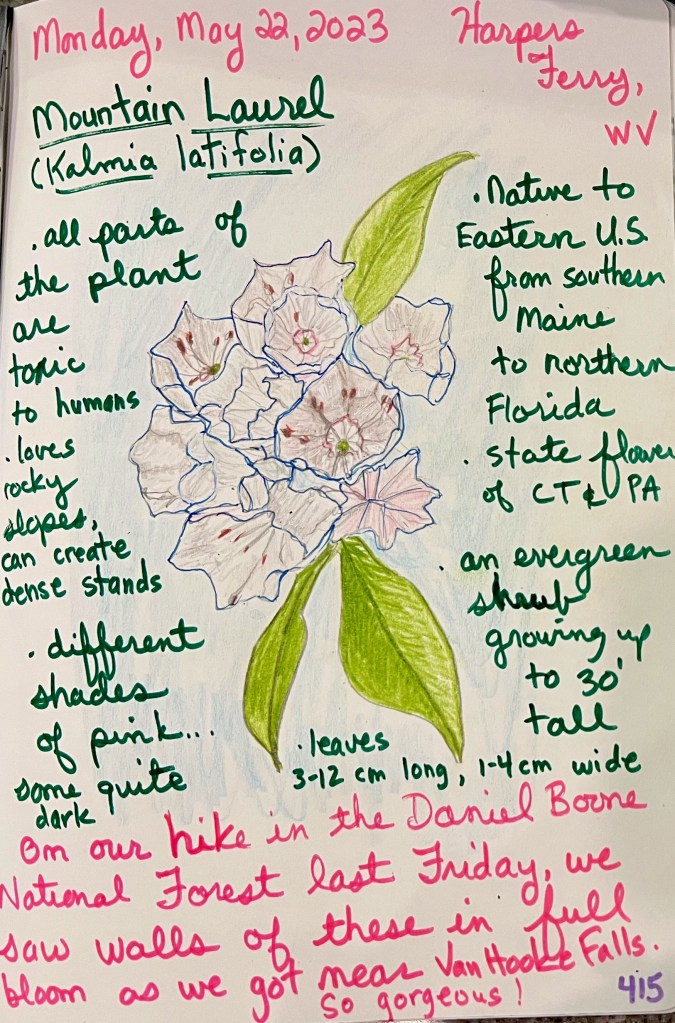 Monday, May 22, 2023
Harpers
Ferry,
WV
Mountain Laurel
(Kalmia latifolia)
. all parts of
the plant
are
toxic
to humans
. loves
rocky
slopes,
can create
dense stands
. different
shades
of pink...
some quite
dark
. Native to
Eastern U.S.
from southern
Maine
to northern
Florida
. state flower
of CT & PA
. an evergreen
shrub
growing up
to 30'
tall
. leaves
3-12 cm long, 1-4 cm wide
On our hike in the Daniel Boone
National Forest last Friday, we
saw walls of these in full
bloom as we got near Van Hooke Falls.
So gorgeous!
415